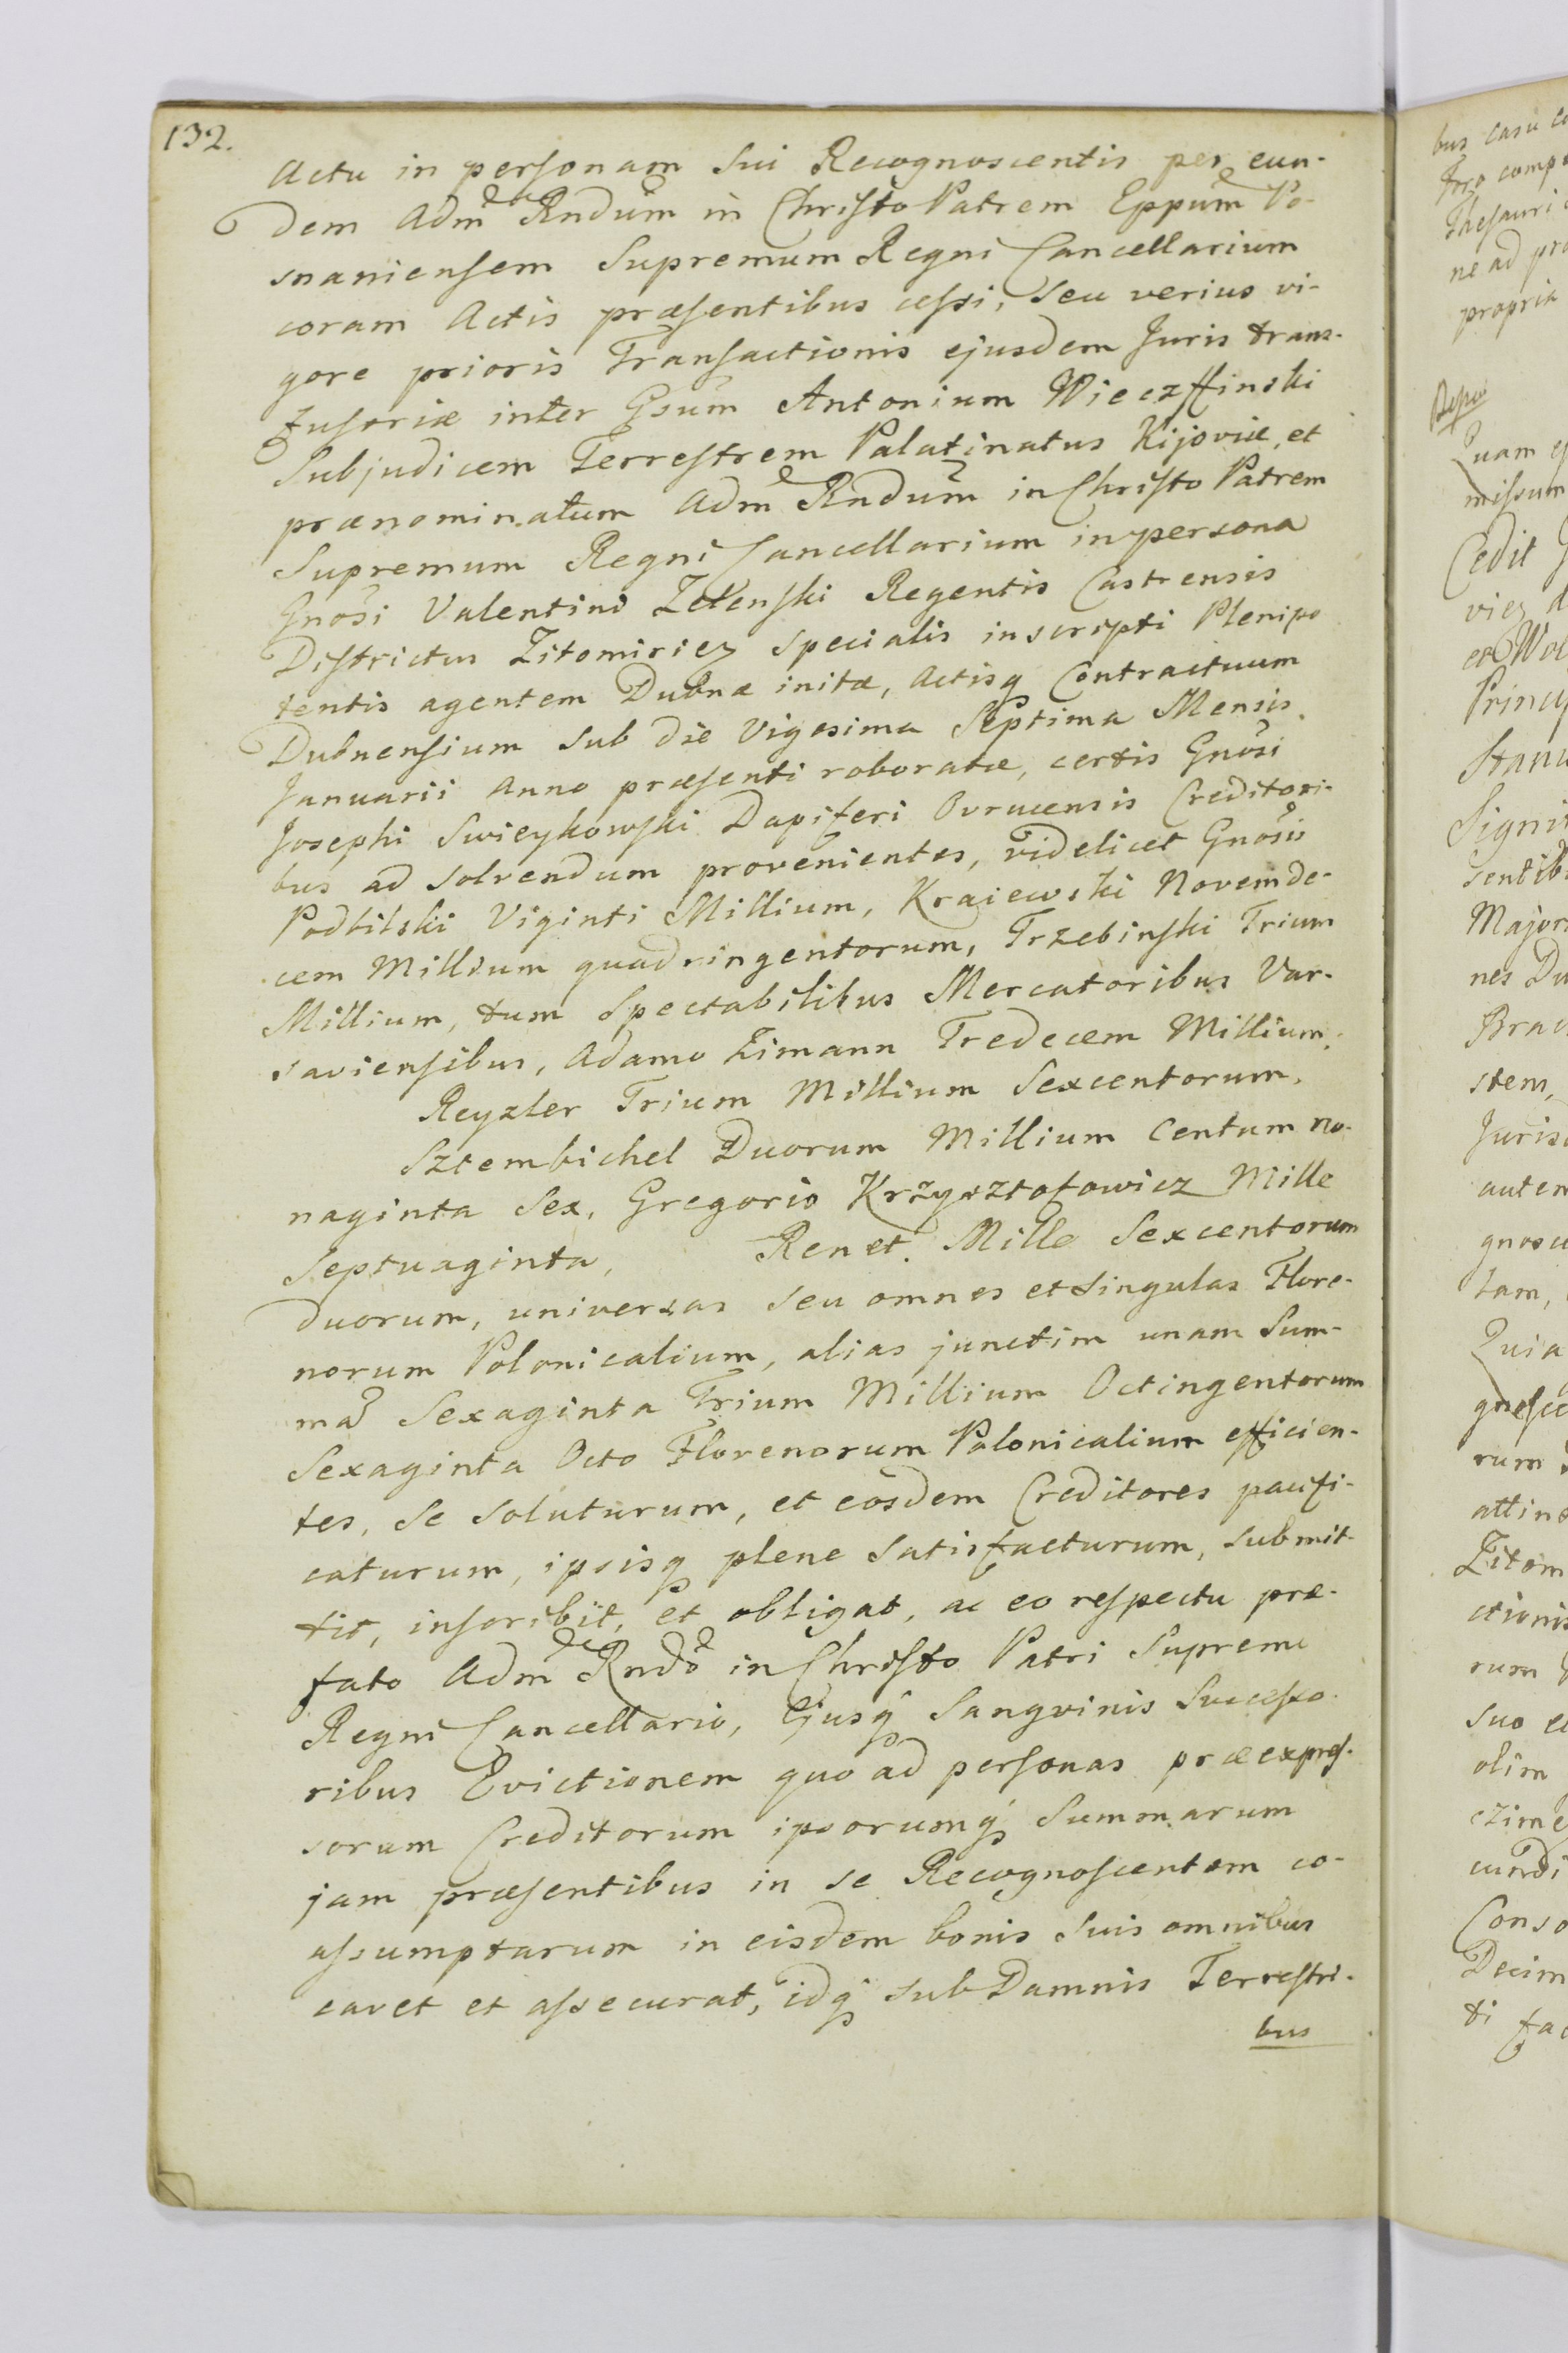 132.
Actu in personam Sui Recognoscentis per eun-
dem Adm Rndum in Christo Patrem Eppum Po-
snaniensem Supremum Regni Cancellarium
coram Actis præsentibus cessi, seu verius vi-
gore prioris Transactionis ejusdem Juris trans-
fusoriæ inter Gsum Antonium Wieczffinski
Subjudicem Terrestrem Palatinatus Kijoviæ, et
prænominatum Adm Rndum in Christo Patrem
Supremum Regni Cancellarium in persona
Gnosi Valentini Zelenski Regentis Castrensis
Districtus Zitomiriez Specialis inscripti Plenipo
tentis agentem Dubnæ initæ, Actisq Contractuum
Dubnensium sub die Vigesima Septima Mensis
Januarii Anno præsenti roboratæ, certis Gnosi
Josephi Swieykowski Dapiferi Ovrucensis Creditori-
bus ad solvendum provenientes, videlicet Gnosis
Podbilski Viginti Millium, Kraiewski Novemde-
cem Millium quadringentorum, Trzebinski Trium
Millium, tum Spectabilibus Mercatoribus Var-
saviensibus, Adamo Zimann Tredecem Millium,
Reyzler Trium Millium Sexcentorum,
Sztembichel Duorum Millium Centum no-
naginta Sex, Gregorio Krzysztofowicz Mille
Septuaginta, Renet Mille Sexcentorum
duorum, universas seu omnes et singulas Flore-
norum Polonicalium, alias junctim unam Sum-
ma Sexaginta Trium Millium Octingentorum
Sexaginta Octo Florenorum Polonicalium efficien-
tes, se soluturum, et eosdem Creditores pacifi-
caturum, ipsisq plene satisfacturum, submit-
tit, inscribit, et obligat, ac eo respectu præ-
fato Adm Rndo in Christo Patri Supremo
Regni Cancellario, Ejusq Sangvinis Successo-
ribus Evictionem quo ad personas præexpres-
sorum Creditorum ipsorumq Summarum
jam præsentibus in se Recognoscentem co-
assumptarum in eisdem bonis suis omnibus
cavet et assecurat, idq sub Damnis Terrestri-
bus
bus casu
Foro comp
Thesauri
ne ad pro
propria
Quam
missum
Cedit
Princip
Stanis
Signi
sentib
Major
nes Du
Brac
stem,
Juris
autem
gnosc
tam,
Quia
gnosc
rum
attin
Zitom
ctionis
rum
suo
olim
czime
cundi
Conso
Decim
ti fac